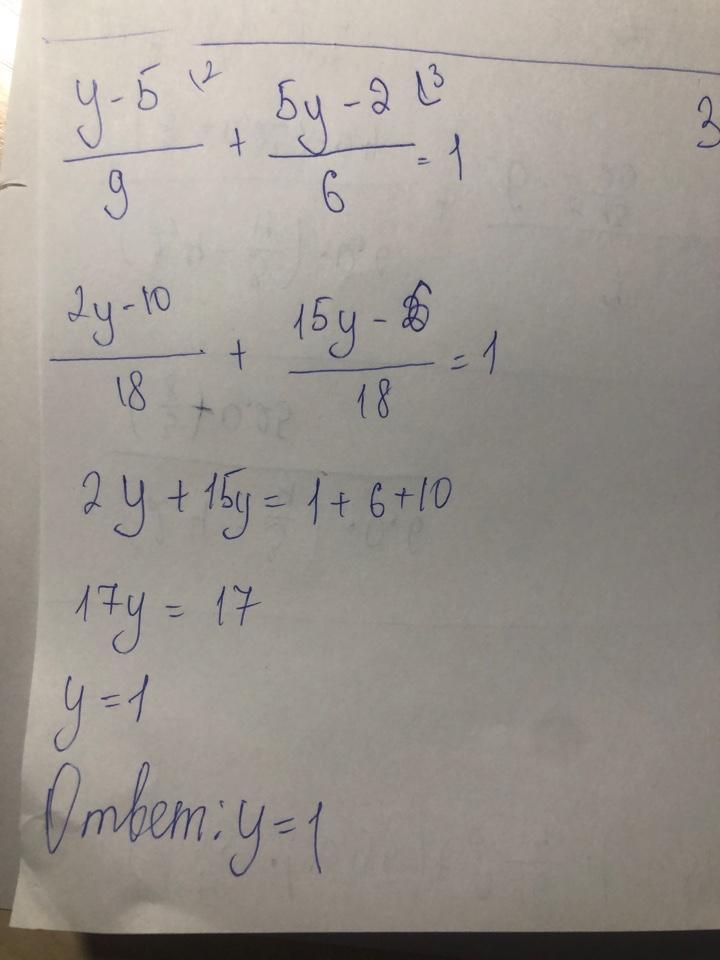 y-5 \2 5y-2 \3
— + — = 1 3
9 6
2y-10 15y-6
— + — = 1
18 18
2y+15y=1+6+10
17y=17
y=1
Ответ: y=1